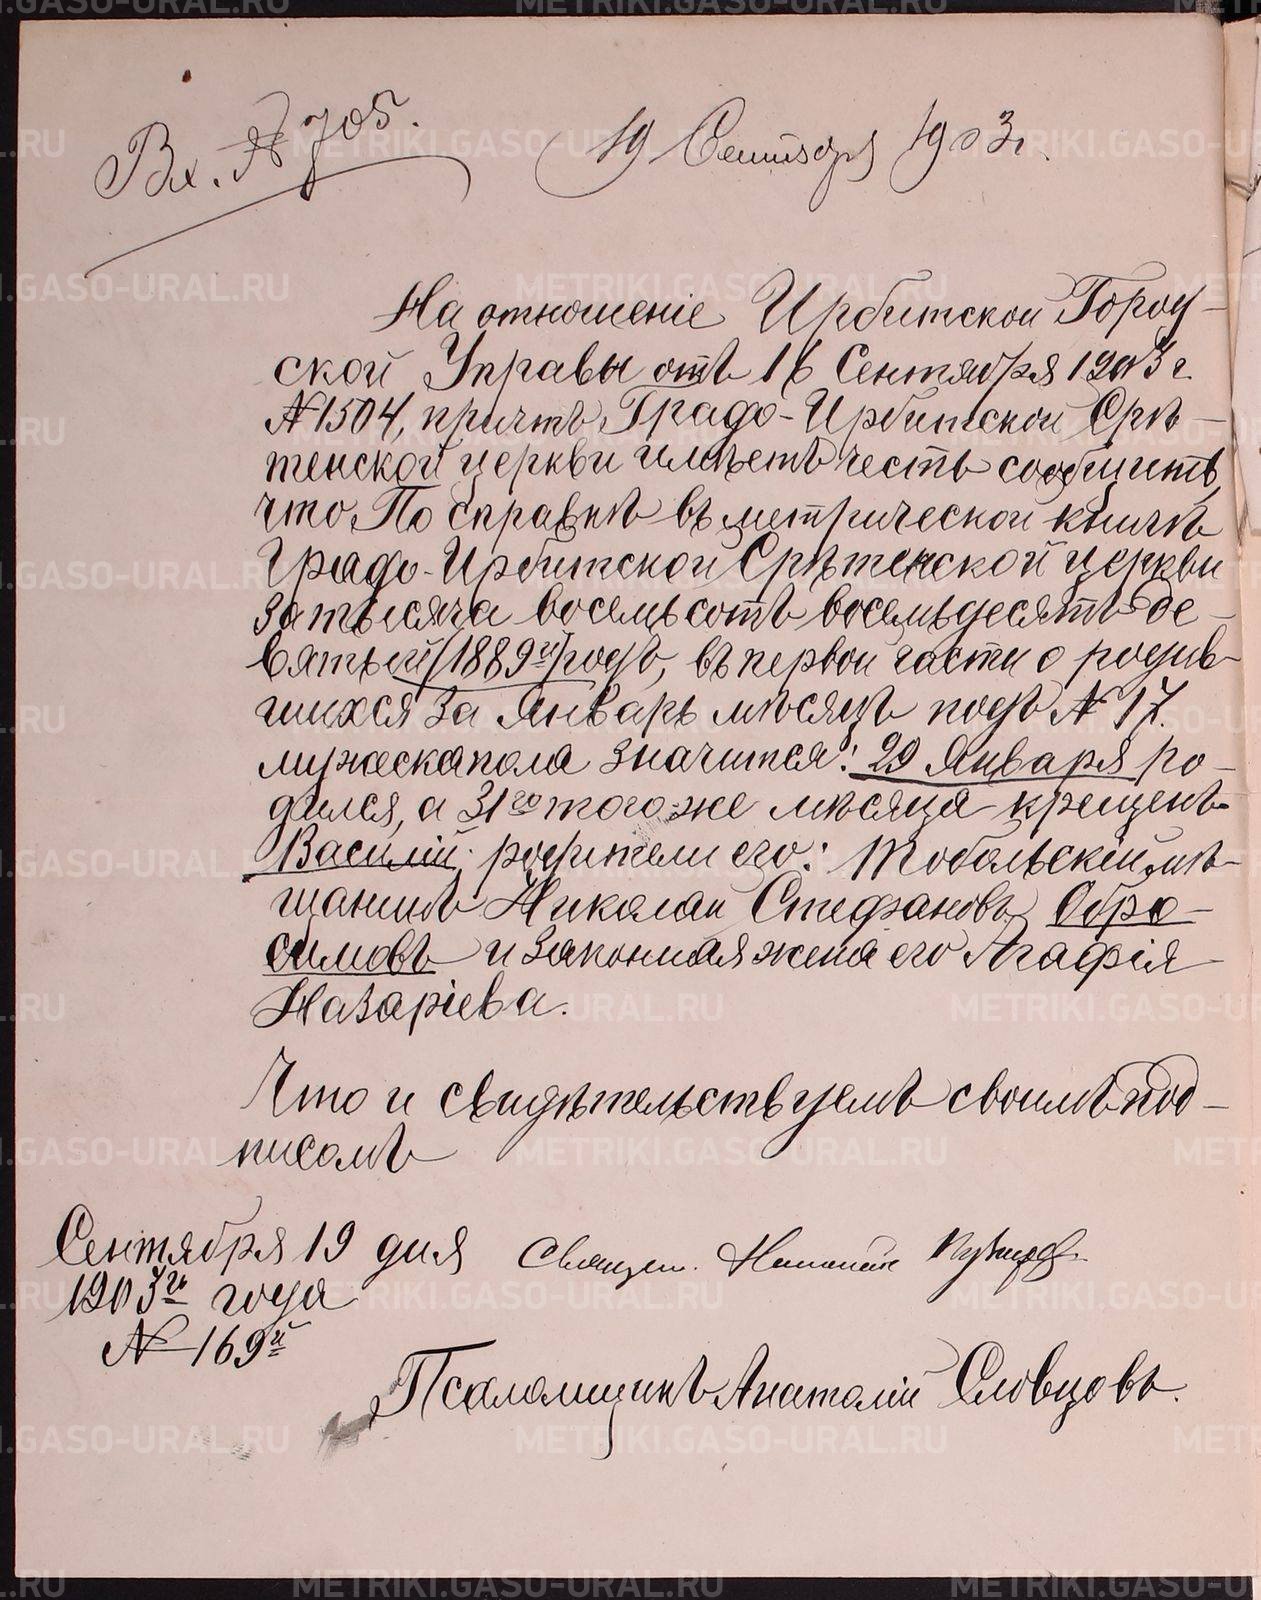 Вх. № 705.
19 Сентября 1903 г.
На отношеніе Ирбитской Город-
ской Управы отъ 16 Сентября 1903 г.
№ 1504, причтъ Градо-Ирбитской Срѣ-
тенской церкви имѣетъ честь сообщить,
что По справкѣ въ метрической книгѣ
Градо-Ирбитской Срѣтенской церкви
за тысяча восемьсотъ восемьдесятъ де-
вятый (1889й) годъ, въ первой части о родив-
шихся за Январь мѣсяцъ подъ № 17.
мужеска пола значится: 29 Января ро-
дился, а 31го того-же мѣсяца крещенъ
Василій; родители его: Тобольскій мѣ-
щанинъ Николай Стефановъ Обро-
симовъ и законная жена его Агафія
Назаріева.
Что и свидѣтельствуемъ своимъ под-
писомъ
Сентября 19 дня
1903го года
№ 169й
Священ. Николай
Псаломщикъ Анатолій Словцовъ.
METRIKI.GASO-URAL.RU